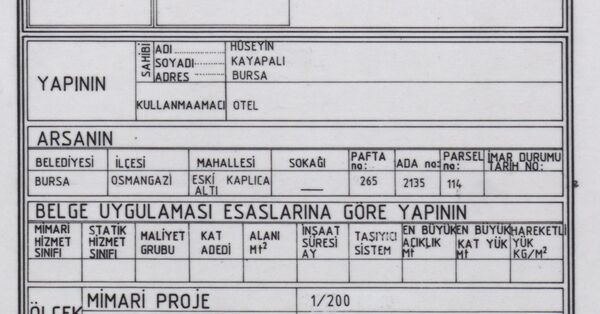 YAPININ
SAHİBİ
ADI HÜSEYİN
SOYADI KAYAPALI
ADRES BURSA
KULLANMAAMACI OTEL
ARSANIN
BELEDİYESİ İLÇESİ MAHALLESİ SOKAĞI PAFTA no: ADA no: PARSEL no: İMAR DURUMU TARİH NO:
BURSA OSMANGAZİ ESKİ KAPLICA ALTI — 265 2135 114
BELGE UYGULAMASI ESASLARINA GÖRE YAPININ
MİMARİ HİZMET SINIFI STATİK HİZMET SINIFI MALİYET GRUBU KAT ADEDİ ALANI Mt² İNŞAAT SÜRESİ AY TAŞIYICI SİSTEM EN BÜYÜK AÇIKLIK Mt EN BÜYÜK KAT YÜK Mt HAREKETLİ YÜK KG/M²
ÖLÇEK
MİMARİ PROJE 1/200